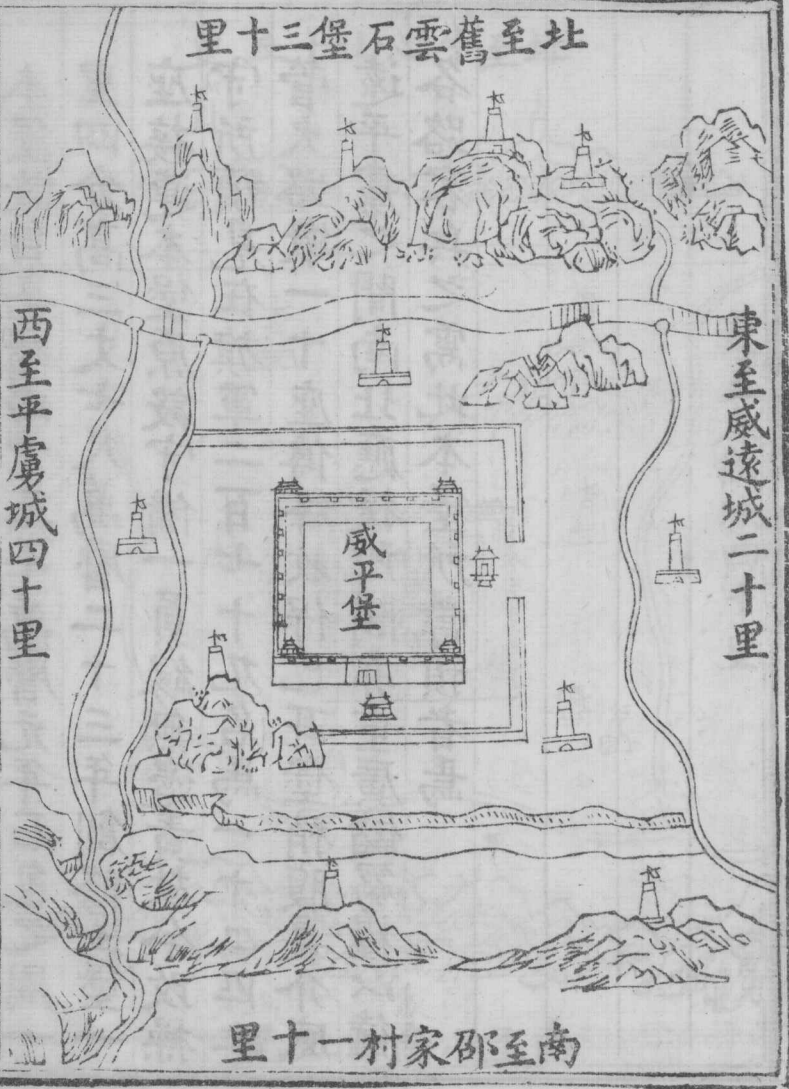 北至舊雲石堡三十里
東至威遠城二十里
威平堡
西至平虜城四十里
南至邵家村一十里